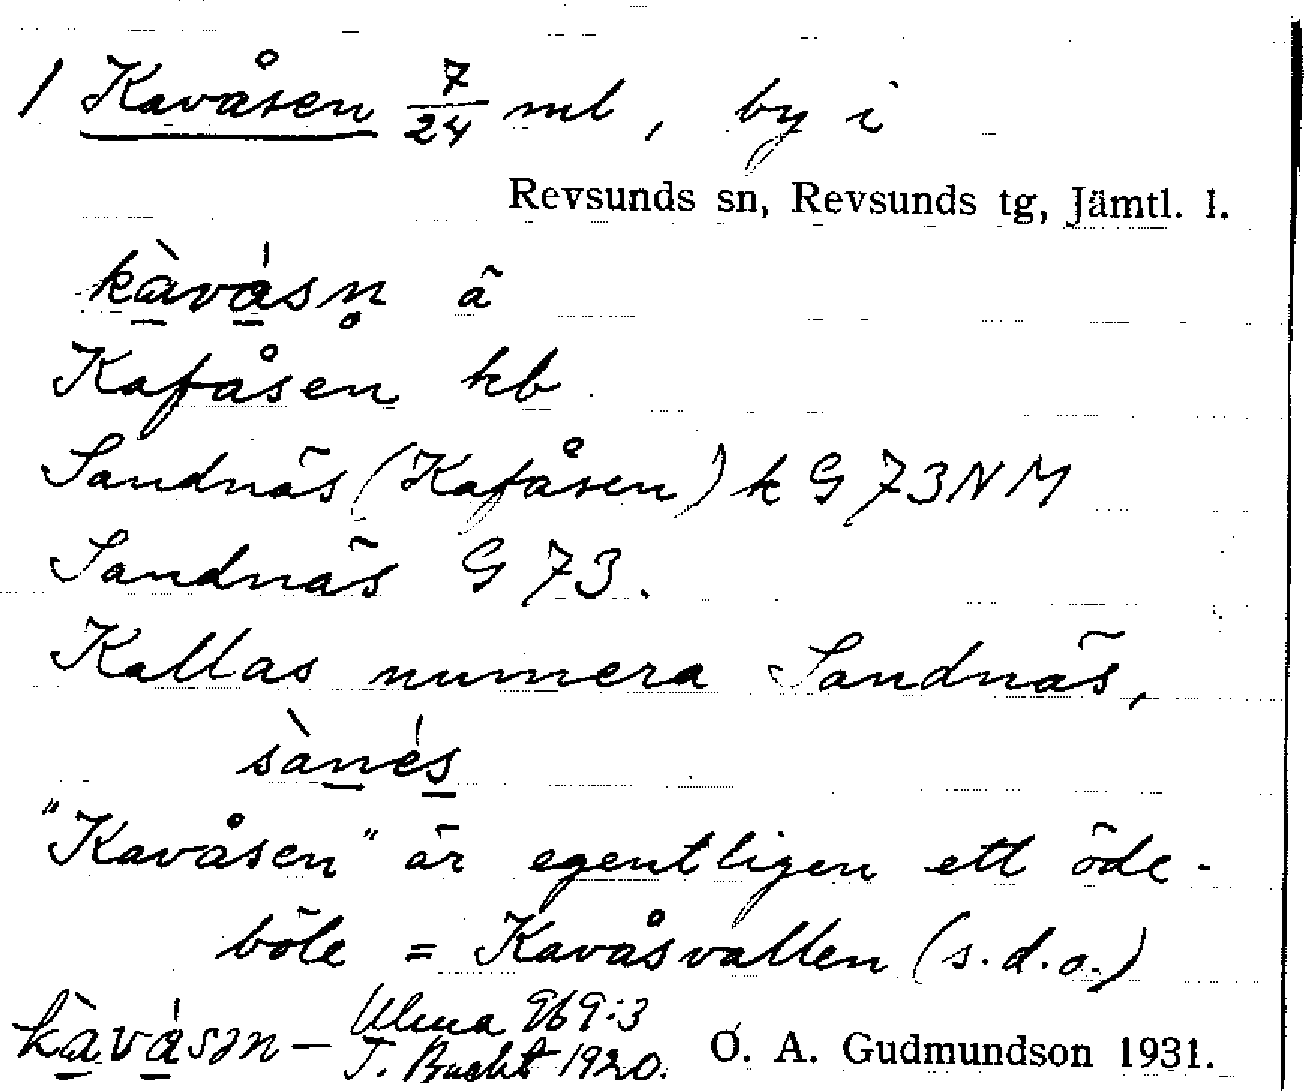 1 Kavåsen 7/24 ml, by i
Revsunds sn, Revsunds tg, Jämtl. l.
kàvásn̥ ä
Kafåsen kb.
Sandnäs (Kafåsen) k G 73 NM
Sandnäs G 73.
Kallas numera Sandnäs,
sànés
"Kavåsen" är egentligen ett öde-
böle = Kavåsvallen (s.d.o.)
kàvásən – Ulma 969:3
T. Bucht 1920.
O. A. Gudmundson 1931.